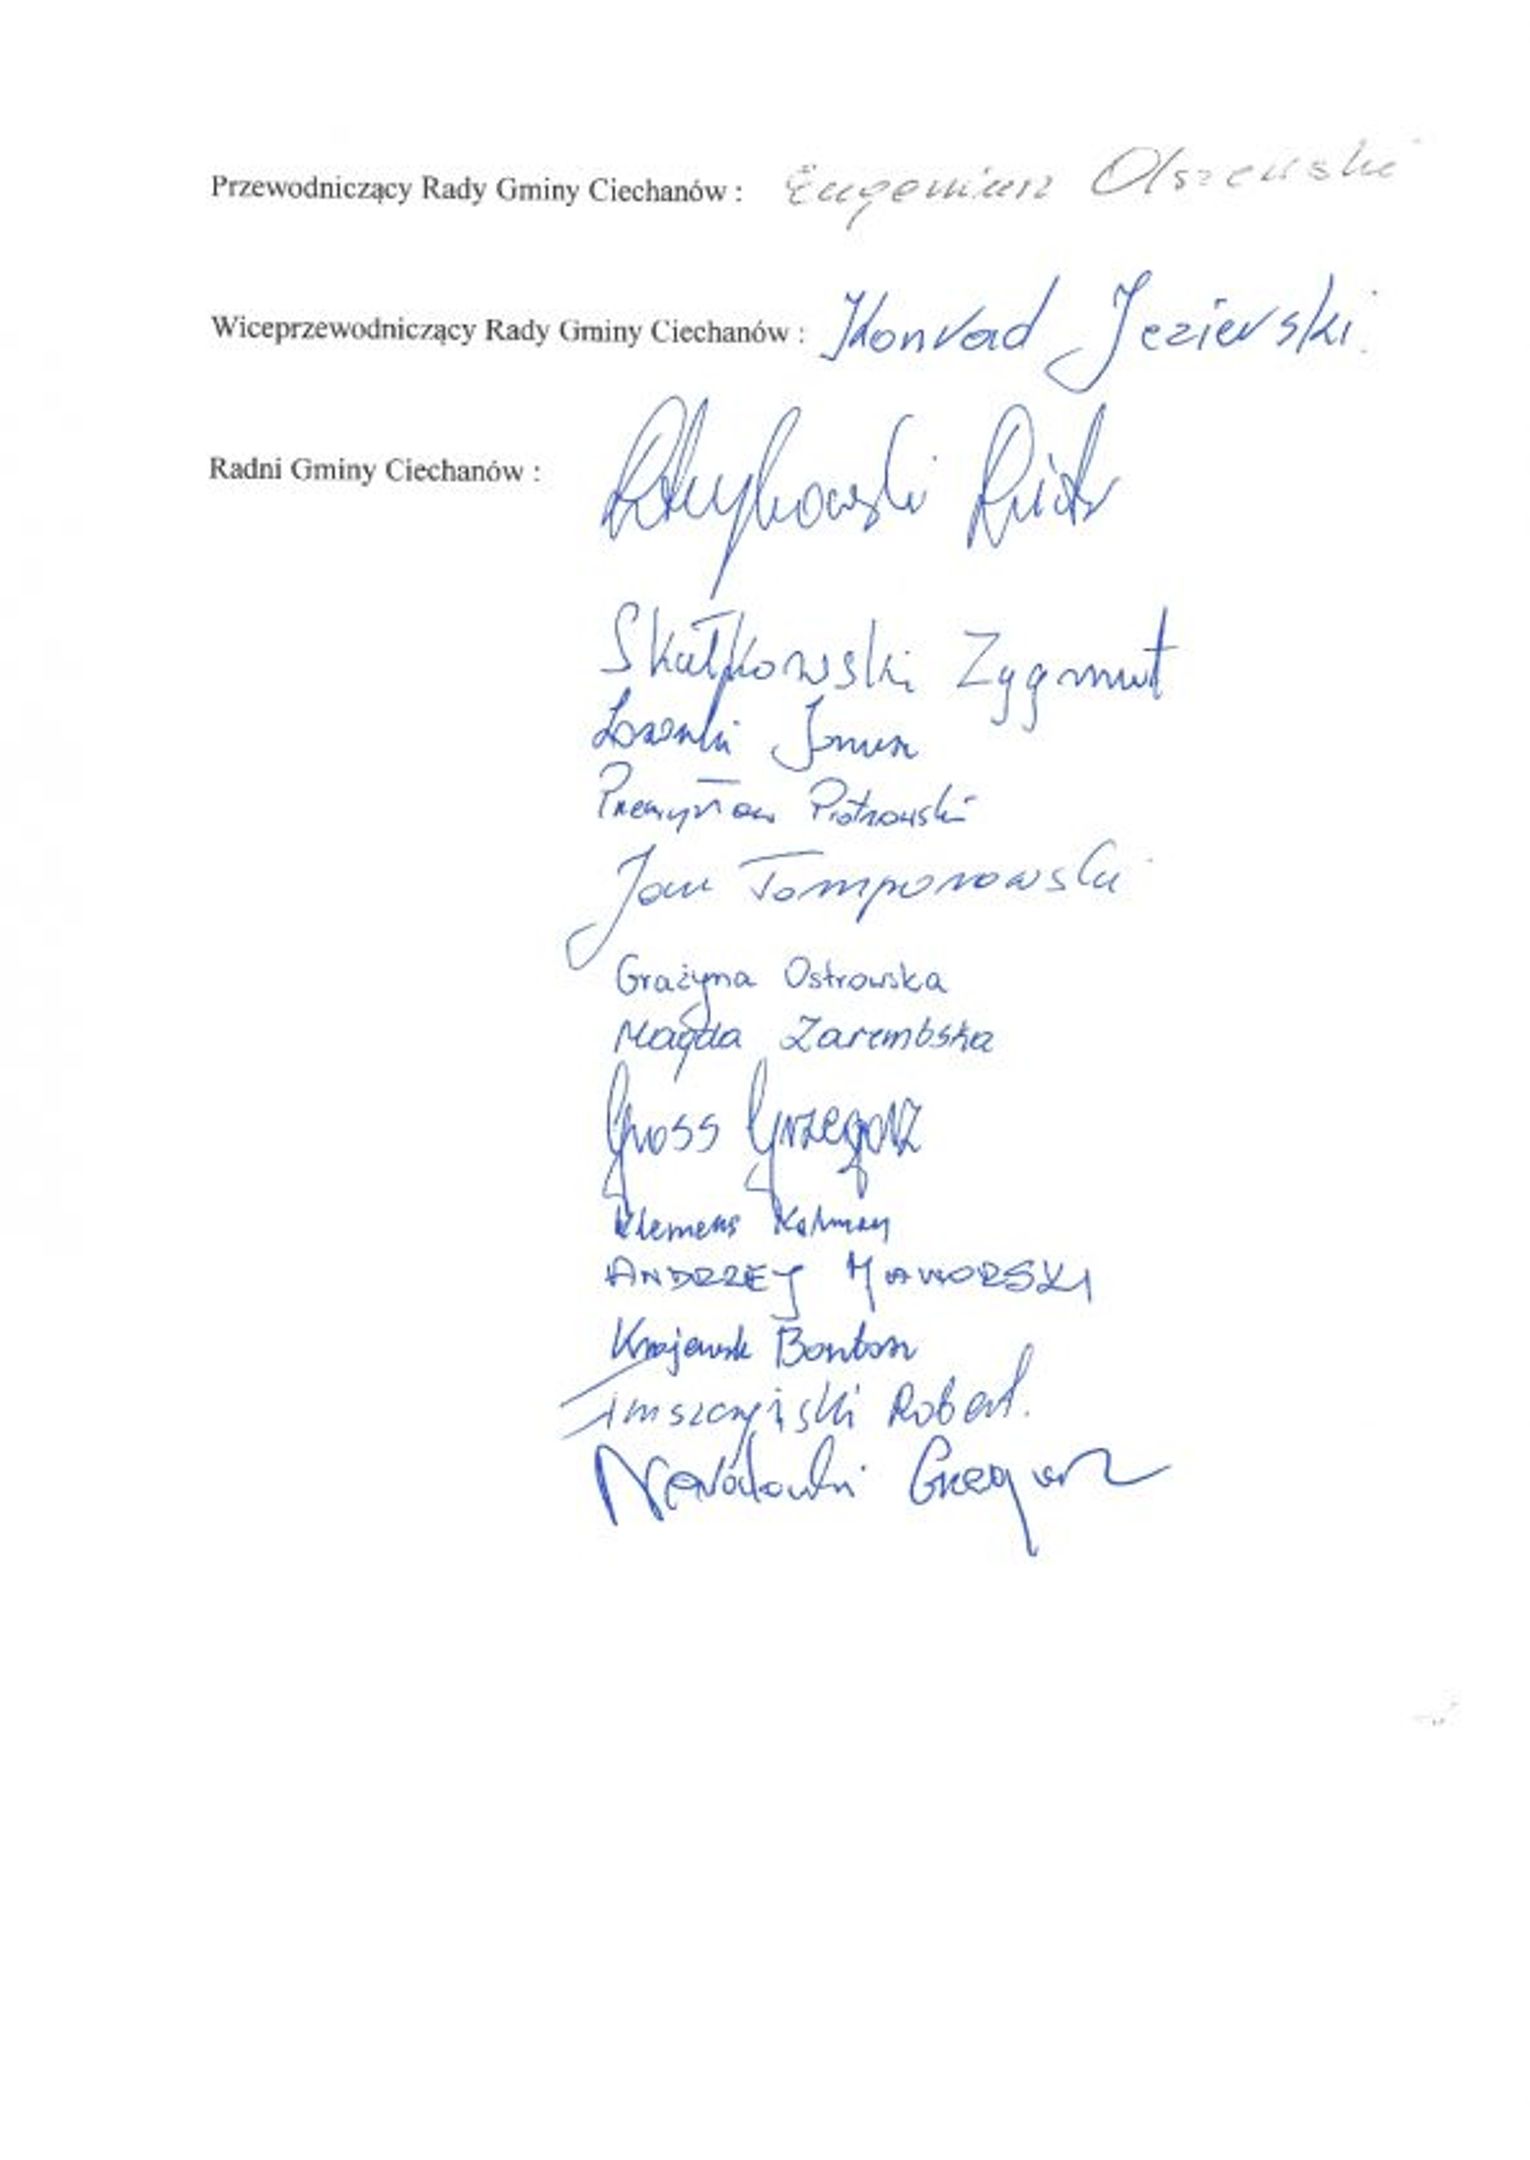 Przewodniczący Rady Gminy Ciechanów : Eugeniusz Olszewski
Wiceprzewodniczący Rady Gminy Ciechanów : Konrad Jezierski
Radni Gminy Ciechanów :
Skałkowski Zygmunt
Janusz
Przemysław Piotrowski
Jan Tomporowski
Grażyna Ostrowska
Magda Zarembska
Gross Grzegorz
Klemens
ANDRZEJ JAWORSKI
Bartosz
Robert.
Grzegorz